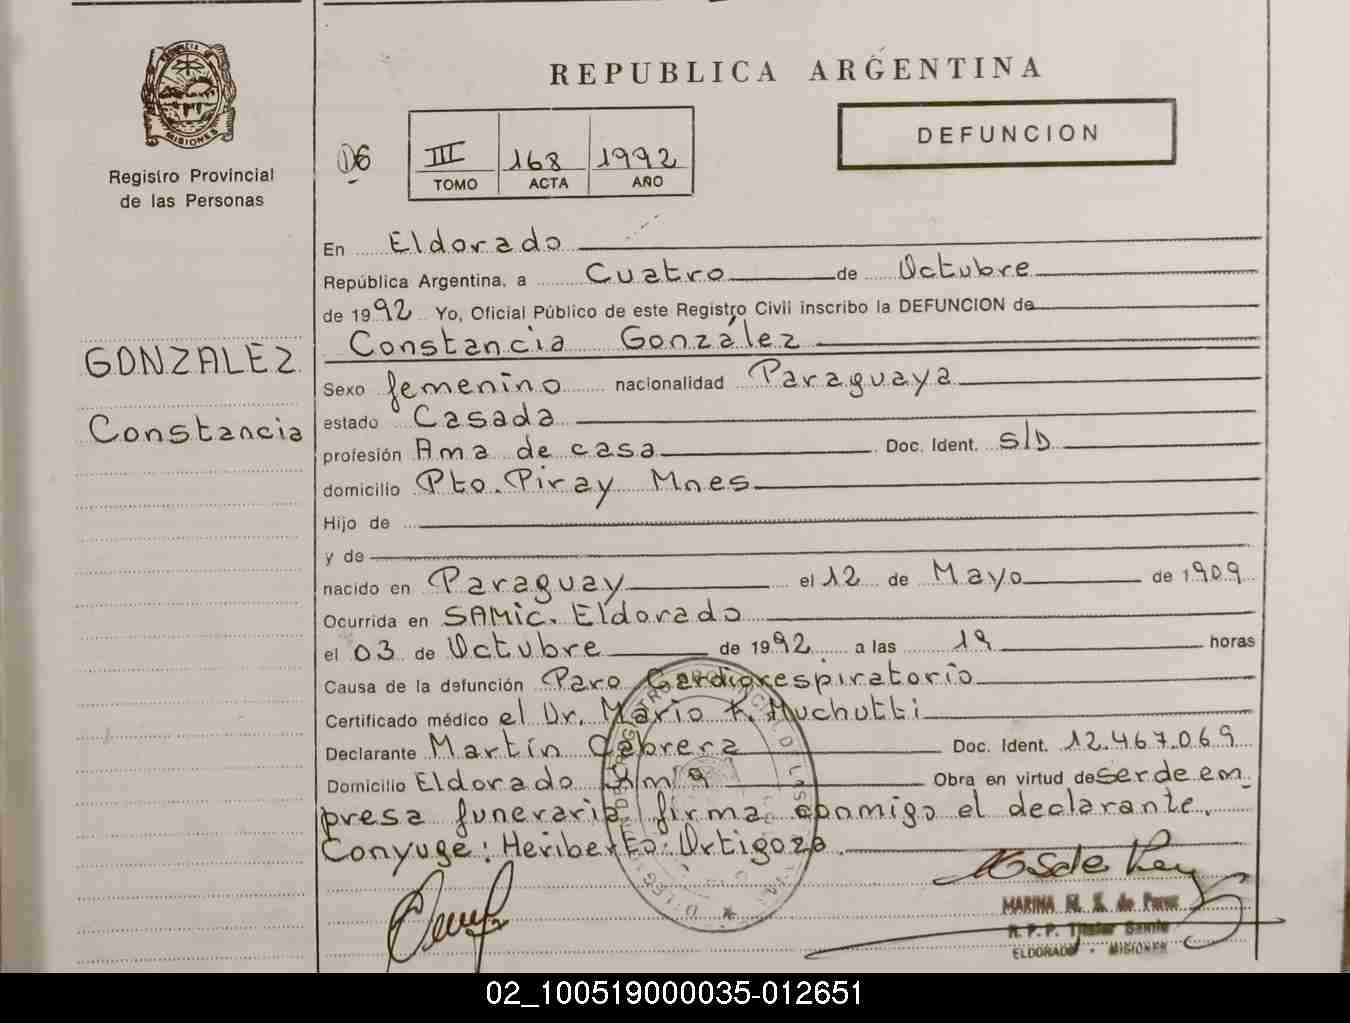 MISIONES
Registro Provincial
de las Personas
REPUBLICA ARGENTINA
DEFUNCION
06
III 168 1992
TOMO ACTA AÑO
En Eldorado
República Argentina, a Cuatro de Octubre
de 1992 Yo, Oficial Público de este Registro Civil inscribo la DEFUNCION de
Constancia González
GONZALEZ
Constancia
Sexo femenino nacionalidad Paraguaya
estado Casada
profesión Ama de casa Doc. Ident. S/D
domicilio Pto. Piray Mnes
Hijo de
y de
nacido en Paraguay el 12 de Mayo de 1909
Ocurrida en SAMIC. Eldorado
el 03 de Octubre de 1992 a las 19 horas
Causa de la defunción Paro Cardiorespiratorio
Certificado médico el Dr. Mario R. Muchutti
Declarante Martín Cabrera Doc. Ident. 12.467.069
Domicilio Eldorado km 9 Obra en virtud de ser de em
presa funeraria firma conmigo el declarante.
Conyuge: Heriberto Ortigoza
MARINA de Perez
R. P. P. Titular
ELDORADO - MISIONES
02_100519000035-012651